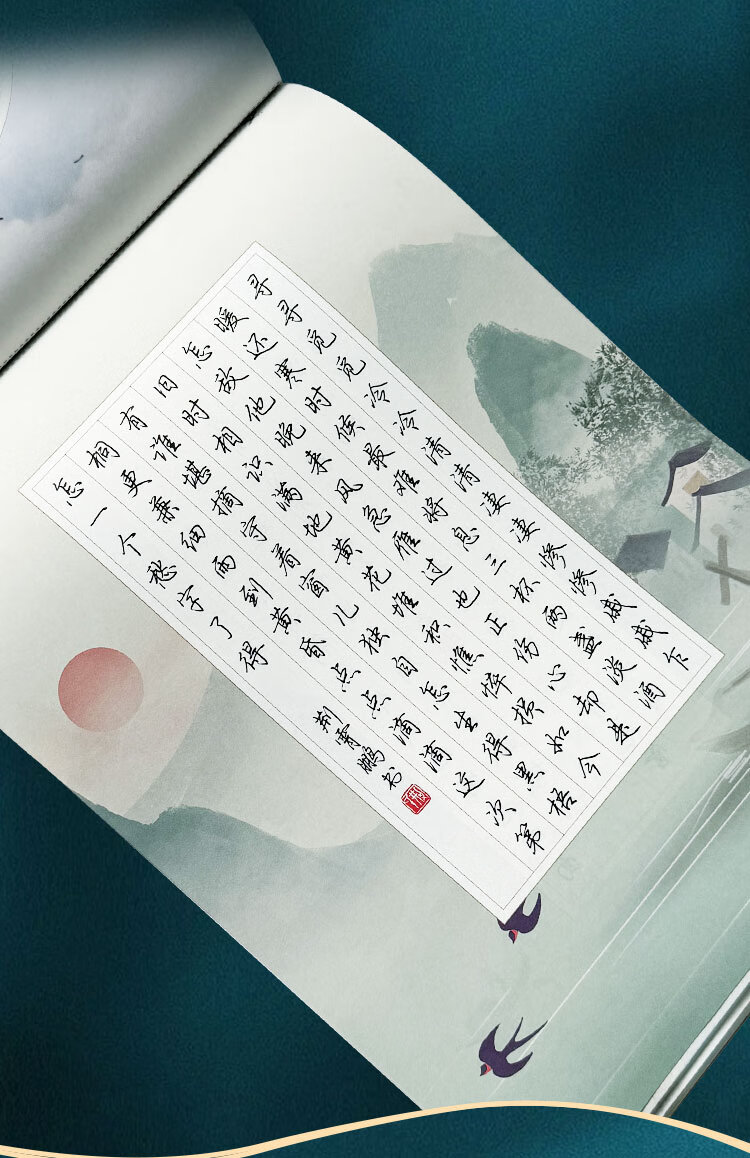 寻寻觅觅冷冷清清凄凄惨惨戚戚乍
暖还寒时候最难将息三杯两盏淡酒
怎敌他晚来风急雁过也正伤心却是
旧时相识满地黄花堆积憔悴损如今
有谁堪摘守着窗儿独自怎生得黑梧
桐更兼细雨到黄昏点点滴滴这次第
怎一个愁字了得
荆霄鹏书